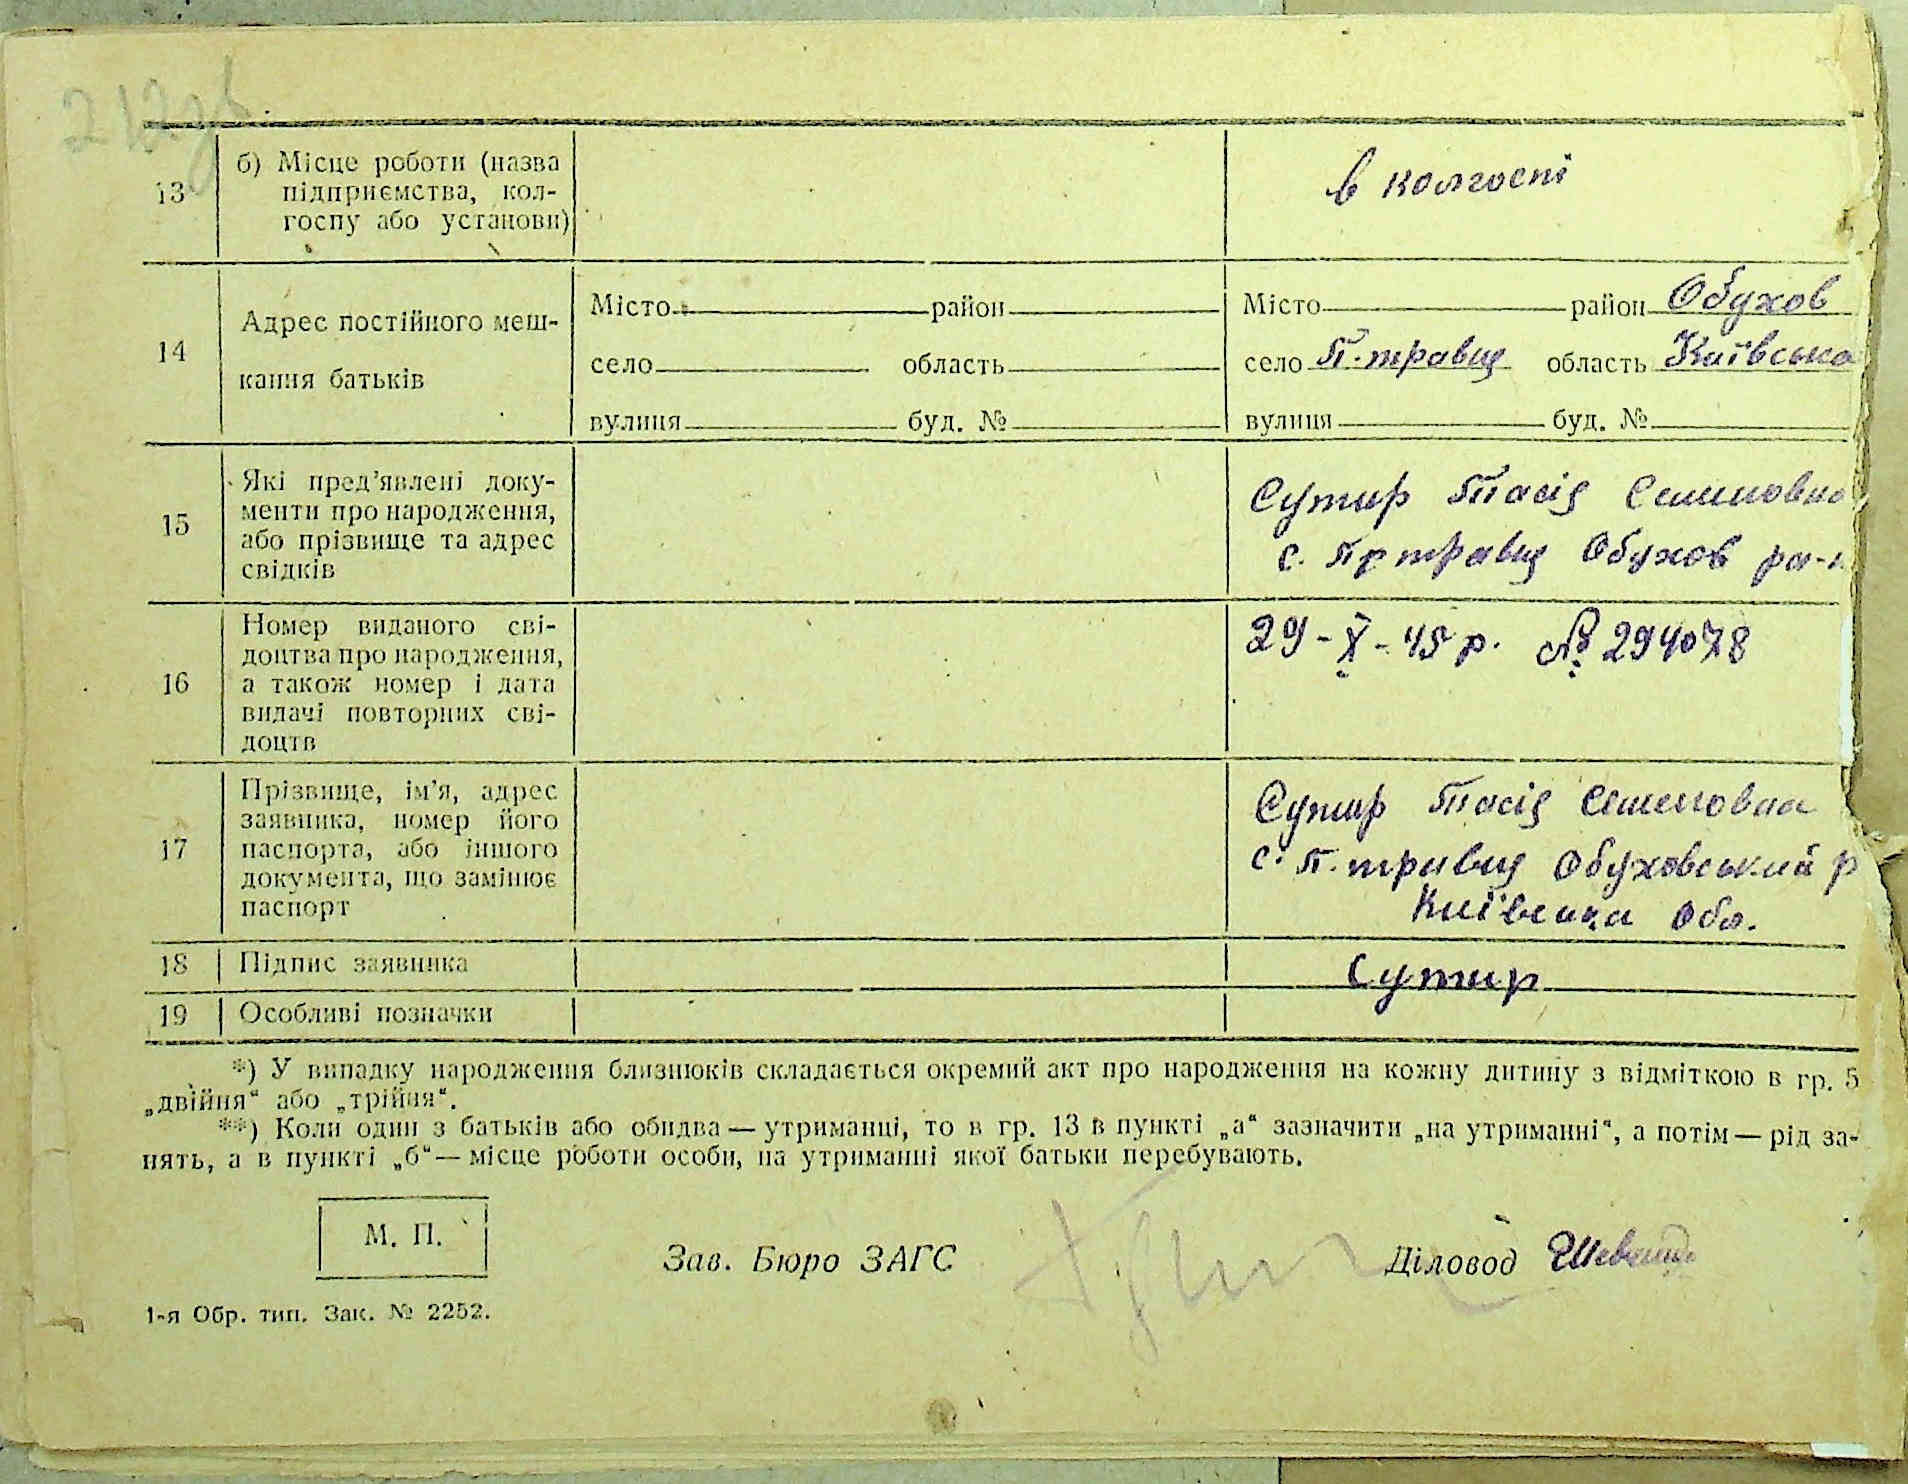 212 зв
13 б) Місце роботи (назва
підприємства, кол-
госпу або установи)
в колгоспі
14 Адрес постійного меш-
кання батьків
Місто район Місто район Обухов
село область село П-травщ область Київська
вулиця буд. № вулиця буд. №
15 Які пред’явлені доку-
менти про народження,
або прізвище та адрес
свідків
Сутир Тасія Семиновна
с. травщ Обухов ра-н
16 Номер виданого сві-
доцтва про народження,
а також номер і дата
видачі повторних сві-
доцтв
29-X-45 р. № 294078
17 Прізвище, ім’я, адрес
заявника, номер його
паспорта, або іншого
документа, що замінює
паспорт
Сутир Тасія Семеновна
с. П. травщ Обуховський р
Київська Обл.
18 Підпис заявника Сутир
19 Особливі позначки
*) У випадку народження близнюків складається окремий акт про народження на кожну дитину з відміткою в гр. 5
„двійня“ або „трійня“.
**) Коли один з батьків або обидва — утриманці, то в гр. 13 в пункті „а“ зазначити „на утриманні“, а потім — рід за-
нять, а в пункті „б“ — місце роботи особи, на утриманні якої батьки перебувають.
М. П.
Зав. Бюро ЗАГС Діловод
1-я Обр. тип. Зак. № 2252.